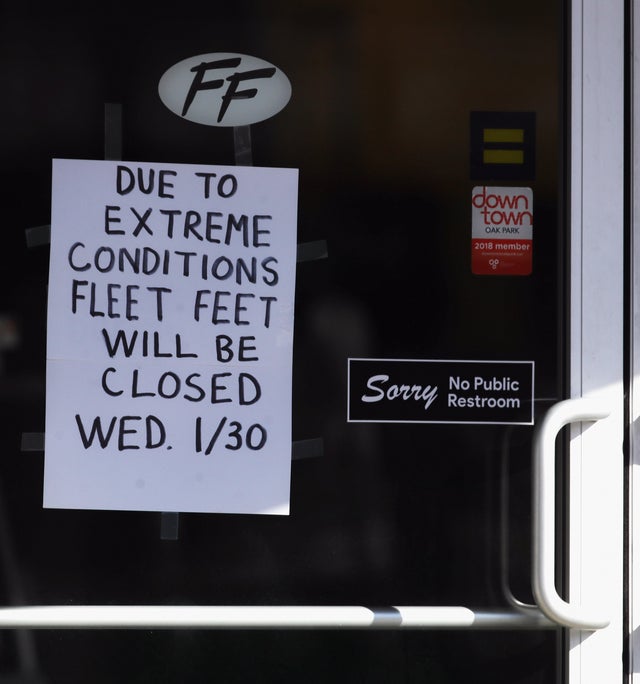 FF
DUE TO
EXTREME
CONDITIONS
FLEET FEET
WILL BE
CLOSED
WED. 1/30
down
town
OAK PARK
2018 member
Sorry No Public
Restroom